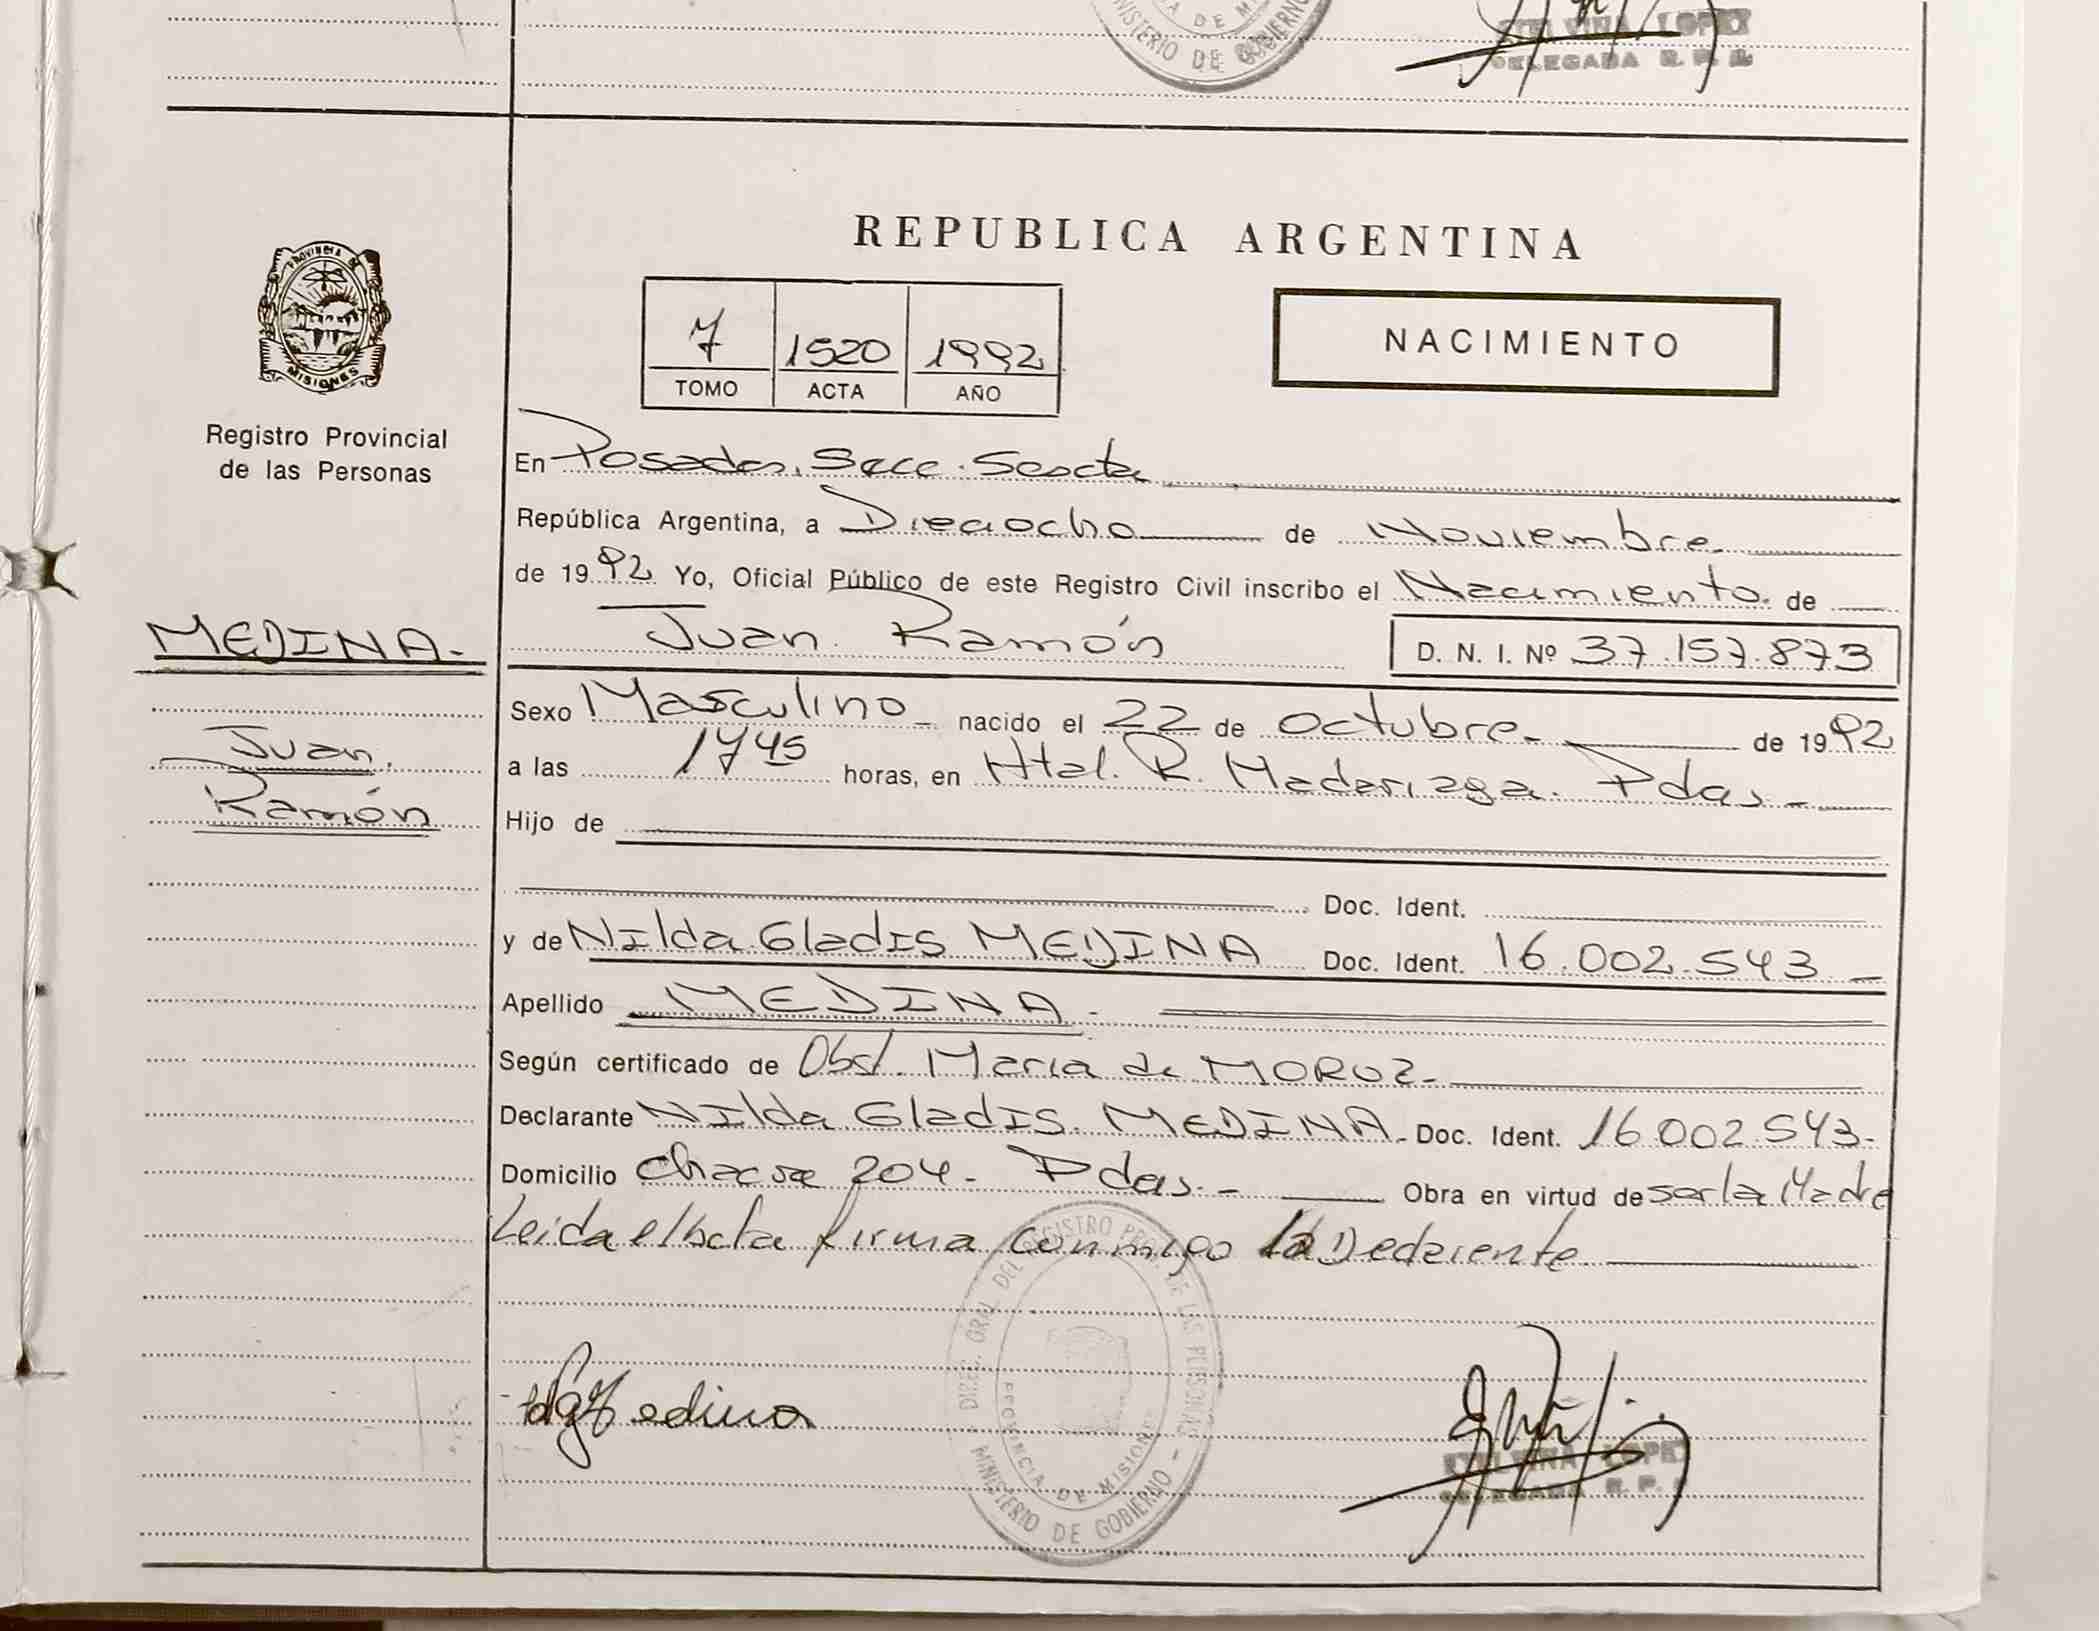 DE M
MINISTERIO DE GOBIERNO
LOPEZ
DELEGADA R. P.
REPUBLICA ARGENTINA
PROVINCIA DE
MISIONES
7 1520 1992
TOMO ACTA AÑO
NACIMIENTO
Registro Provincial
de las Personas
En Posadas, Secc. Sexta
República Argentina, a Dieciocho de Noviembre
de 1992 Yo, Oficial Público de este Registro Civil inscribo el Nacimiento de
MEDINA.
Juan Ramón D. N. I. Nº 37.157.873
Sexo Masculino nacido el 22 de octubre de 1992
Juan
Ramón
a las 1745 horas, en Htal. R. Madariaga. Pdas.
Hijo de
Doc. Ident.
y de Nilda Gladis MEDINA Doc. Ident. 16.002.543
Apellido MEDINA.
Según certificado de Obst. Maria de MOROZ
Declarante Nilda Gladis MEDINA Doc. Ident. 16.002.543.
Domicilio Chacra 204 - Pdas. Obra en virtud de ser la Madre
Leida el acta firma conmigo la Declarante
DIREC. GRAL. DEL REGISTRO PROV. DE LAS PERSONAS
PROVINCIA DE MISIONES
MINISTERIO DE GOBIERNO
Medina
LOPEZ
DELEGADA R. P.